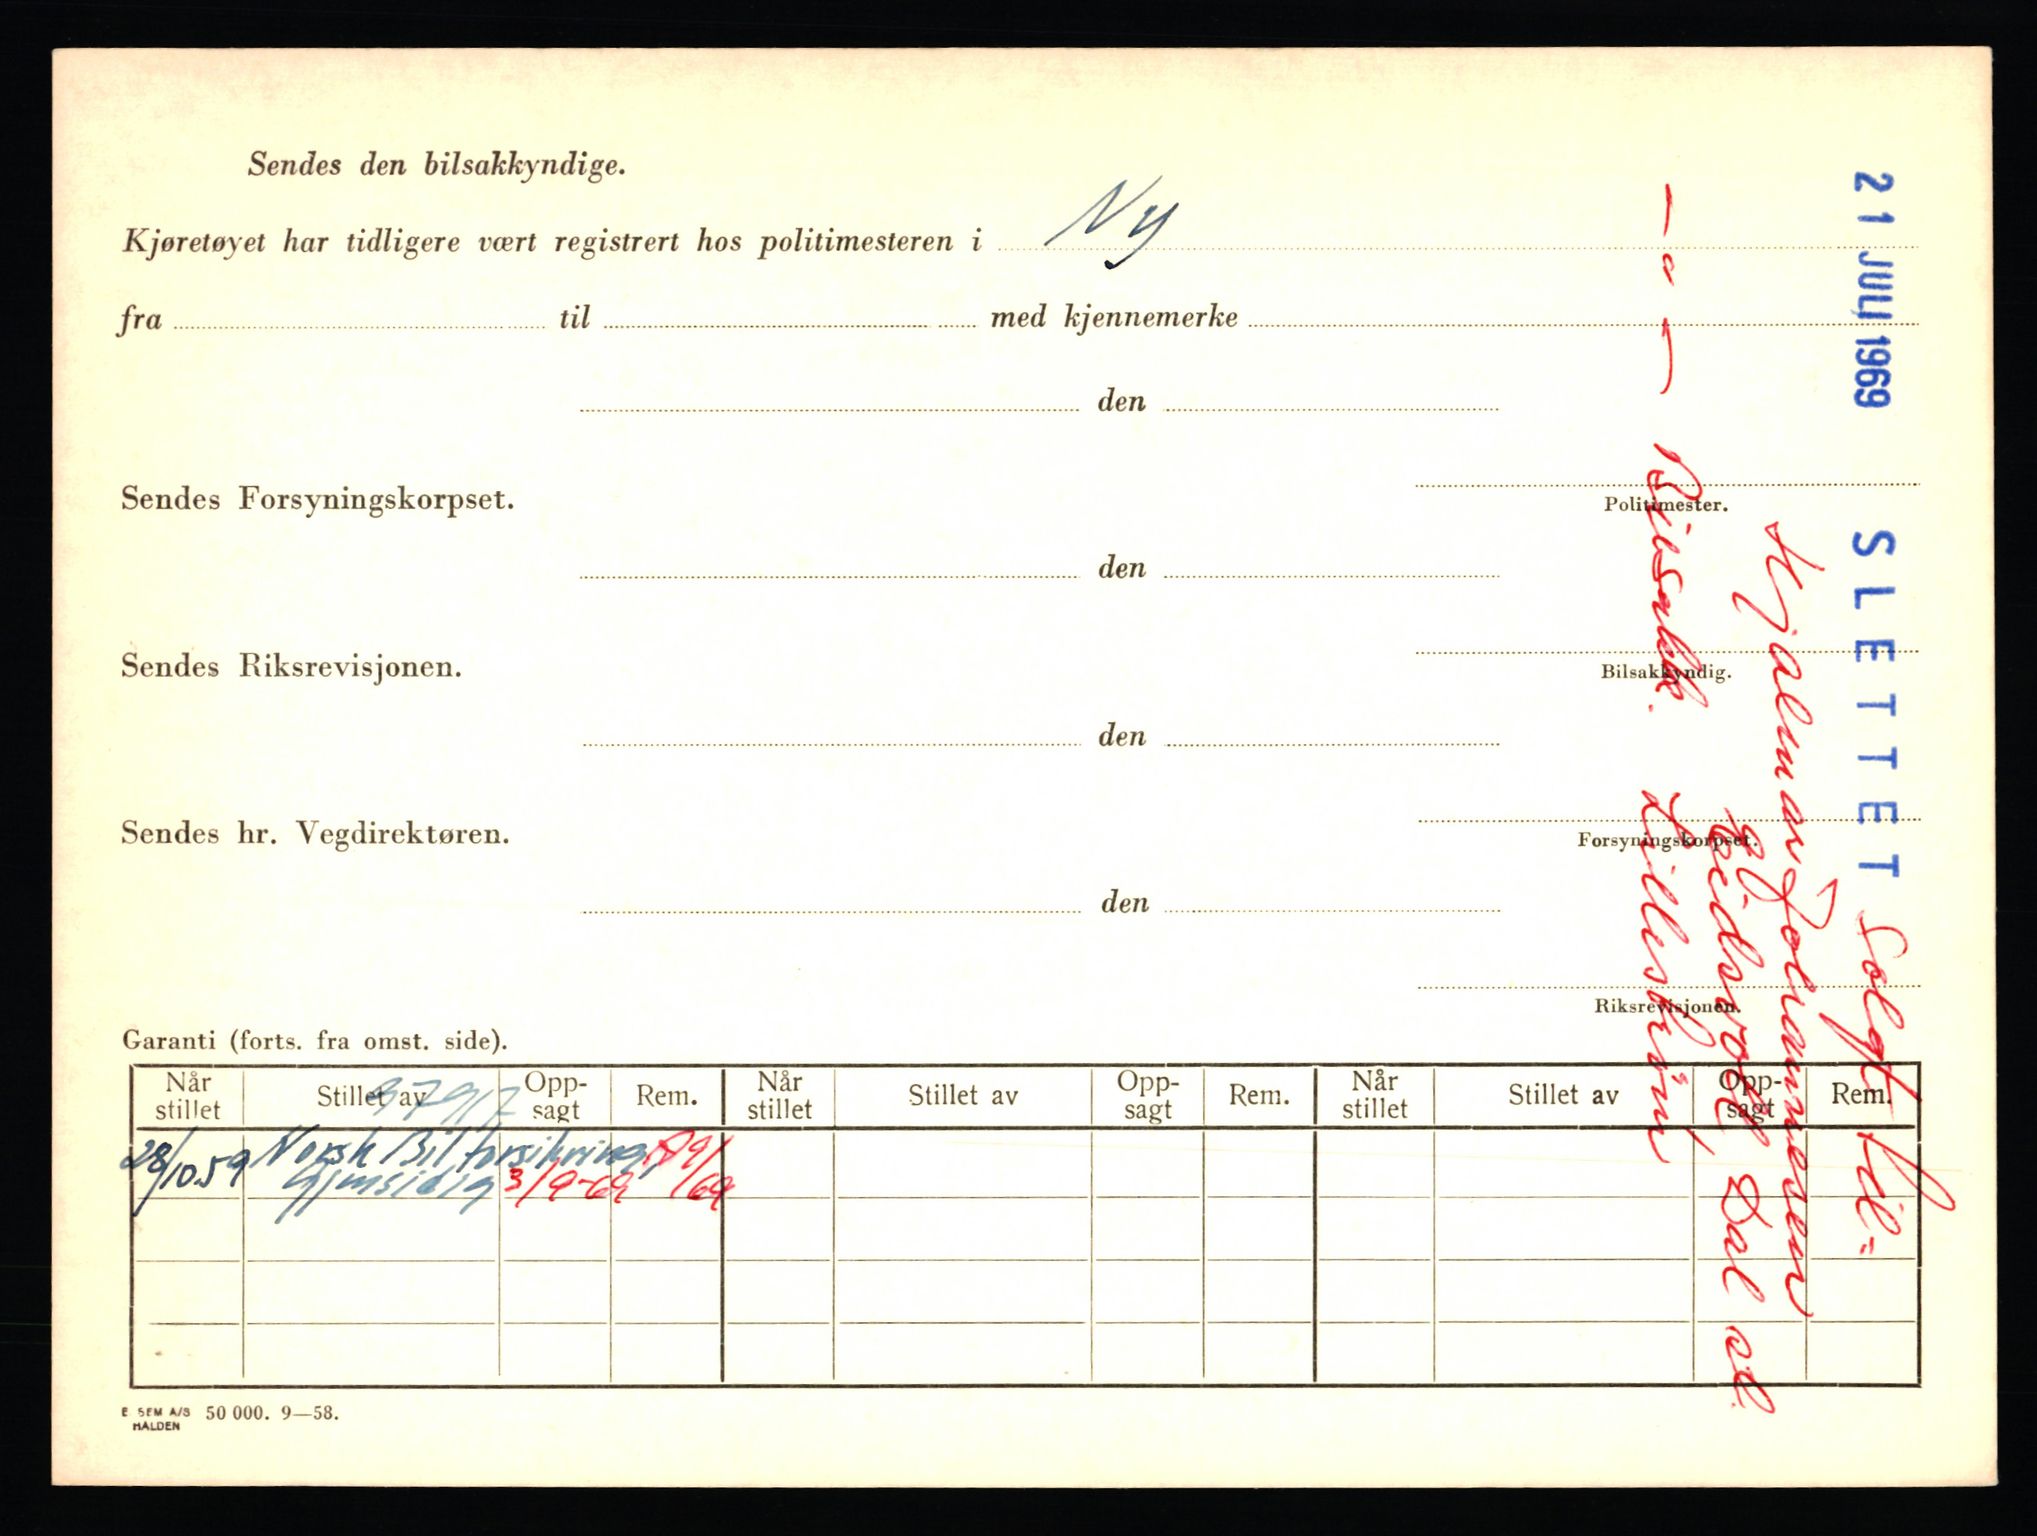 Sendes den bilsakkyndige.
Kjøretøyet har tidligere vært registrert hos politimesteren i Ny
fra til med kjennemerke
den
Sendes Forsyningskorpset.
Politimester.
den
Sendes Riksrevisjonen.
Bilsakkyndig.
den
Sendes hr. Vegdirektøren.
Forsyningskorpset.
den
Riksrevisjonen.
Garanti (forts. fra omst. side).
Når stillet Stillet av Opp-sagt Rem. Når stillet Stillet av Opp-sagt Rem. Når stillet Stillet av Opp-sagt Rem.
37917
28/10.59 Norsk Bilforsikring
Gjensidig 3/9-69 /69
E SEM A/S 50 000. 9—58.
HALDEN
21 JULI 1969 SLETTET Solgt til=
Hjalmar Johannesen
Eidsvoll, Dal st.
— o — Bilsakk. Lillestrøm